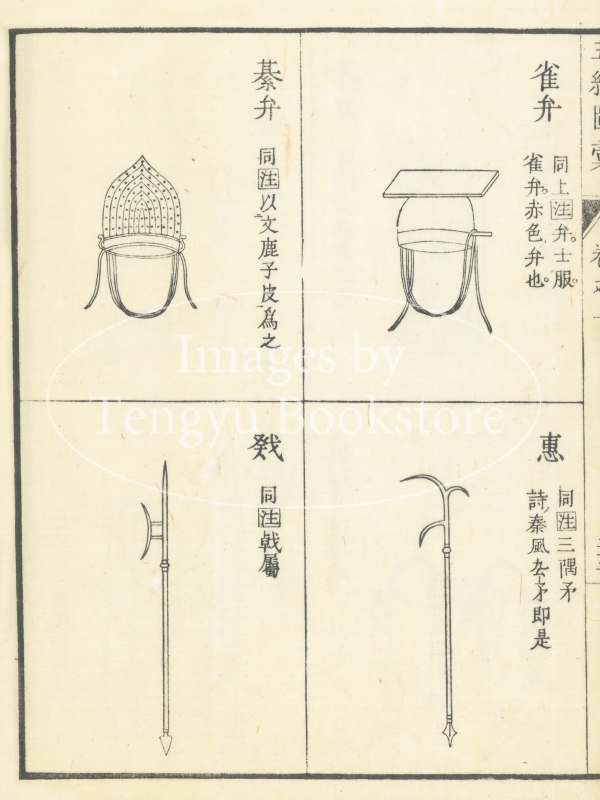 五經圖彙
雀弁
同上注弁。士服。
雀弁。赤色弁也。
惠
同注三隅矛
詩秦風厹矛即是
綦弁
同注以文鹿子皮為之
戣
同注戟屬
Images by
Tengyu Bookstore